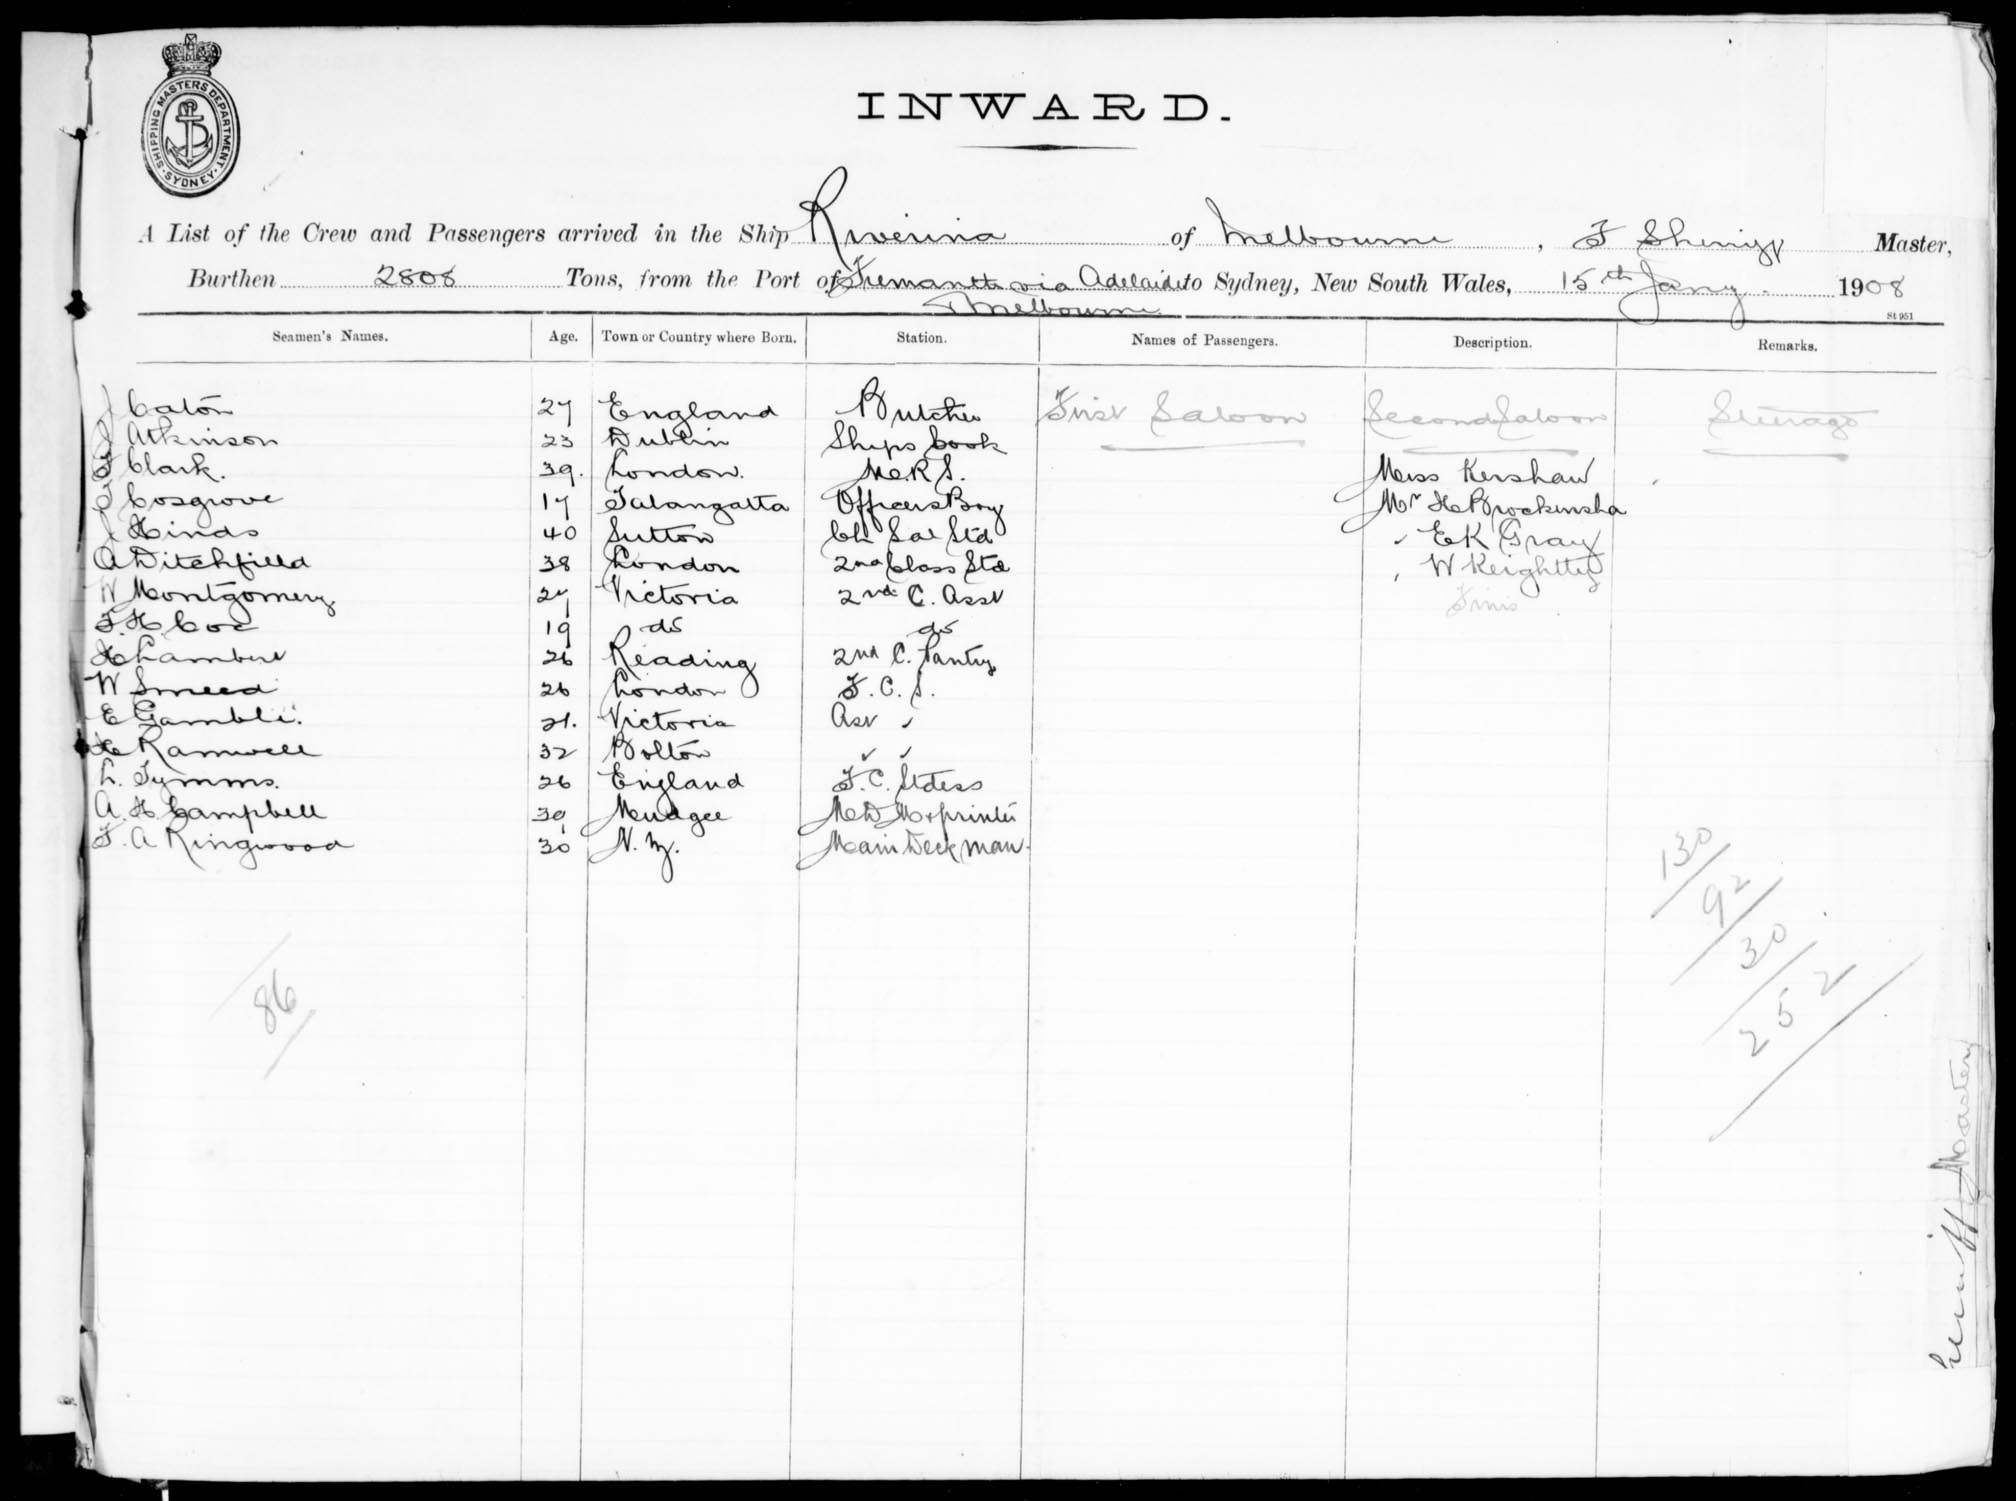 SHIPPING MASTERS DEPARTMENT · SYDNEY ·
INWARD.
A List of the Crew and Passengers arrived in the Ship Riverina of Melbourne, F Sherriff Master,
Burthen 2808 Tons, from the Port of Fremantle via Adelaide to Sydney, New South Wales, 15th Jany. 1908
+ Melbourne
St 951
Seamen's Names. Age. Town or Country where Born. Station. Names of Passengers. Description. Remarks.
First Saloon Second Saloon Steerage
J Caton 27 England Butcher
J Atkinson 23 Dublin Ships Cook
F Clark. 39. London. M.R.S. Miss Kershaw
Cosgrove 17 Talangatta Officers Boy Mr H Brockensha
J Hinds 40 Sutton Ch Sal Std " E K Gray
A Ditchfield 38 London 2nd Class Std " W Keightley
W Montgomery 27 Victoria 2nd C. Asst Finis
F. H. Coe 19 do do
H Lambert 26 Reading 2nd C. Pantry
W Smeed 26 London F. C. S.
E Gamble. 21. Victoria Asst "
H Ramwell 32 Bolton " "
L. Tymms. 26 England F. C. Stdess
A. H. Campbell 30 Mudgee
F. A Ringwood 30 N. Z. Main Deck man
86
130
92
30
252
Master